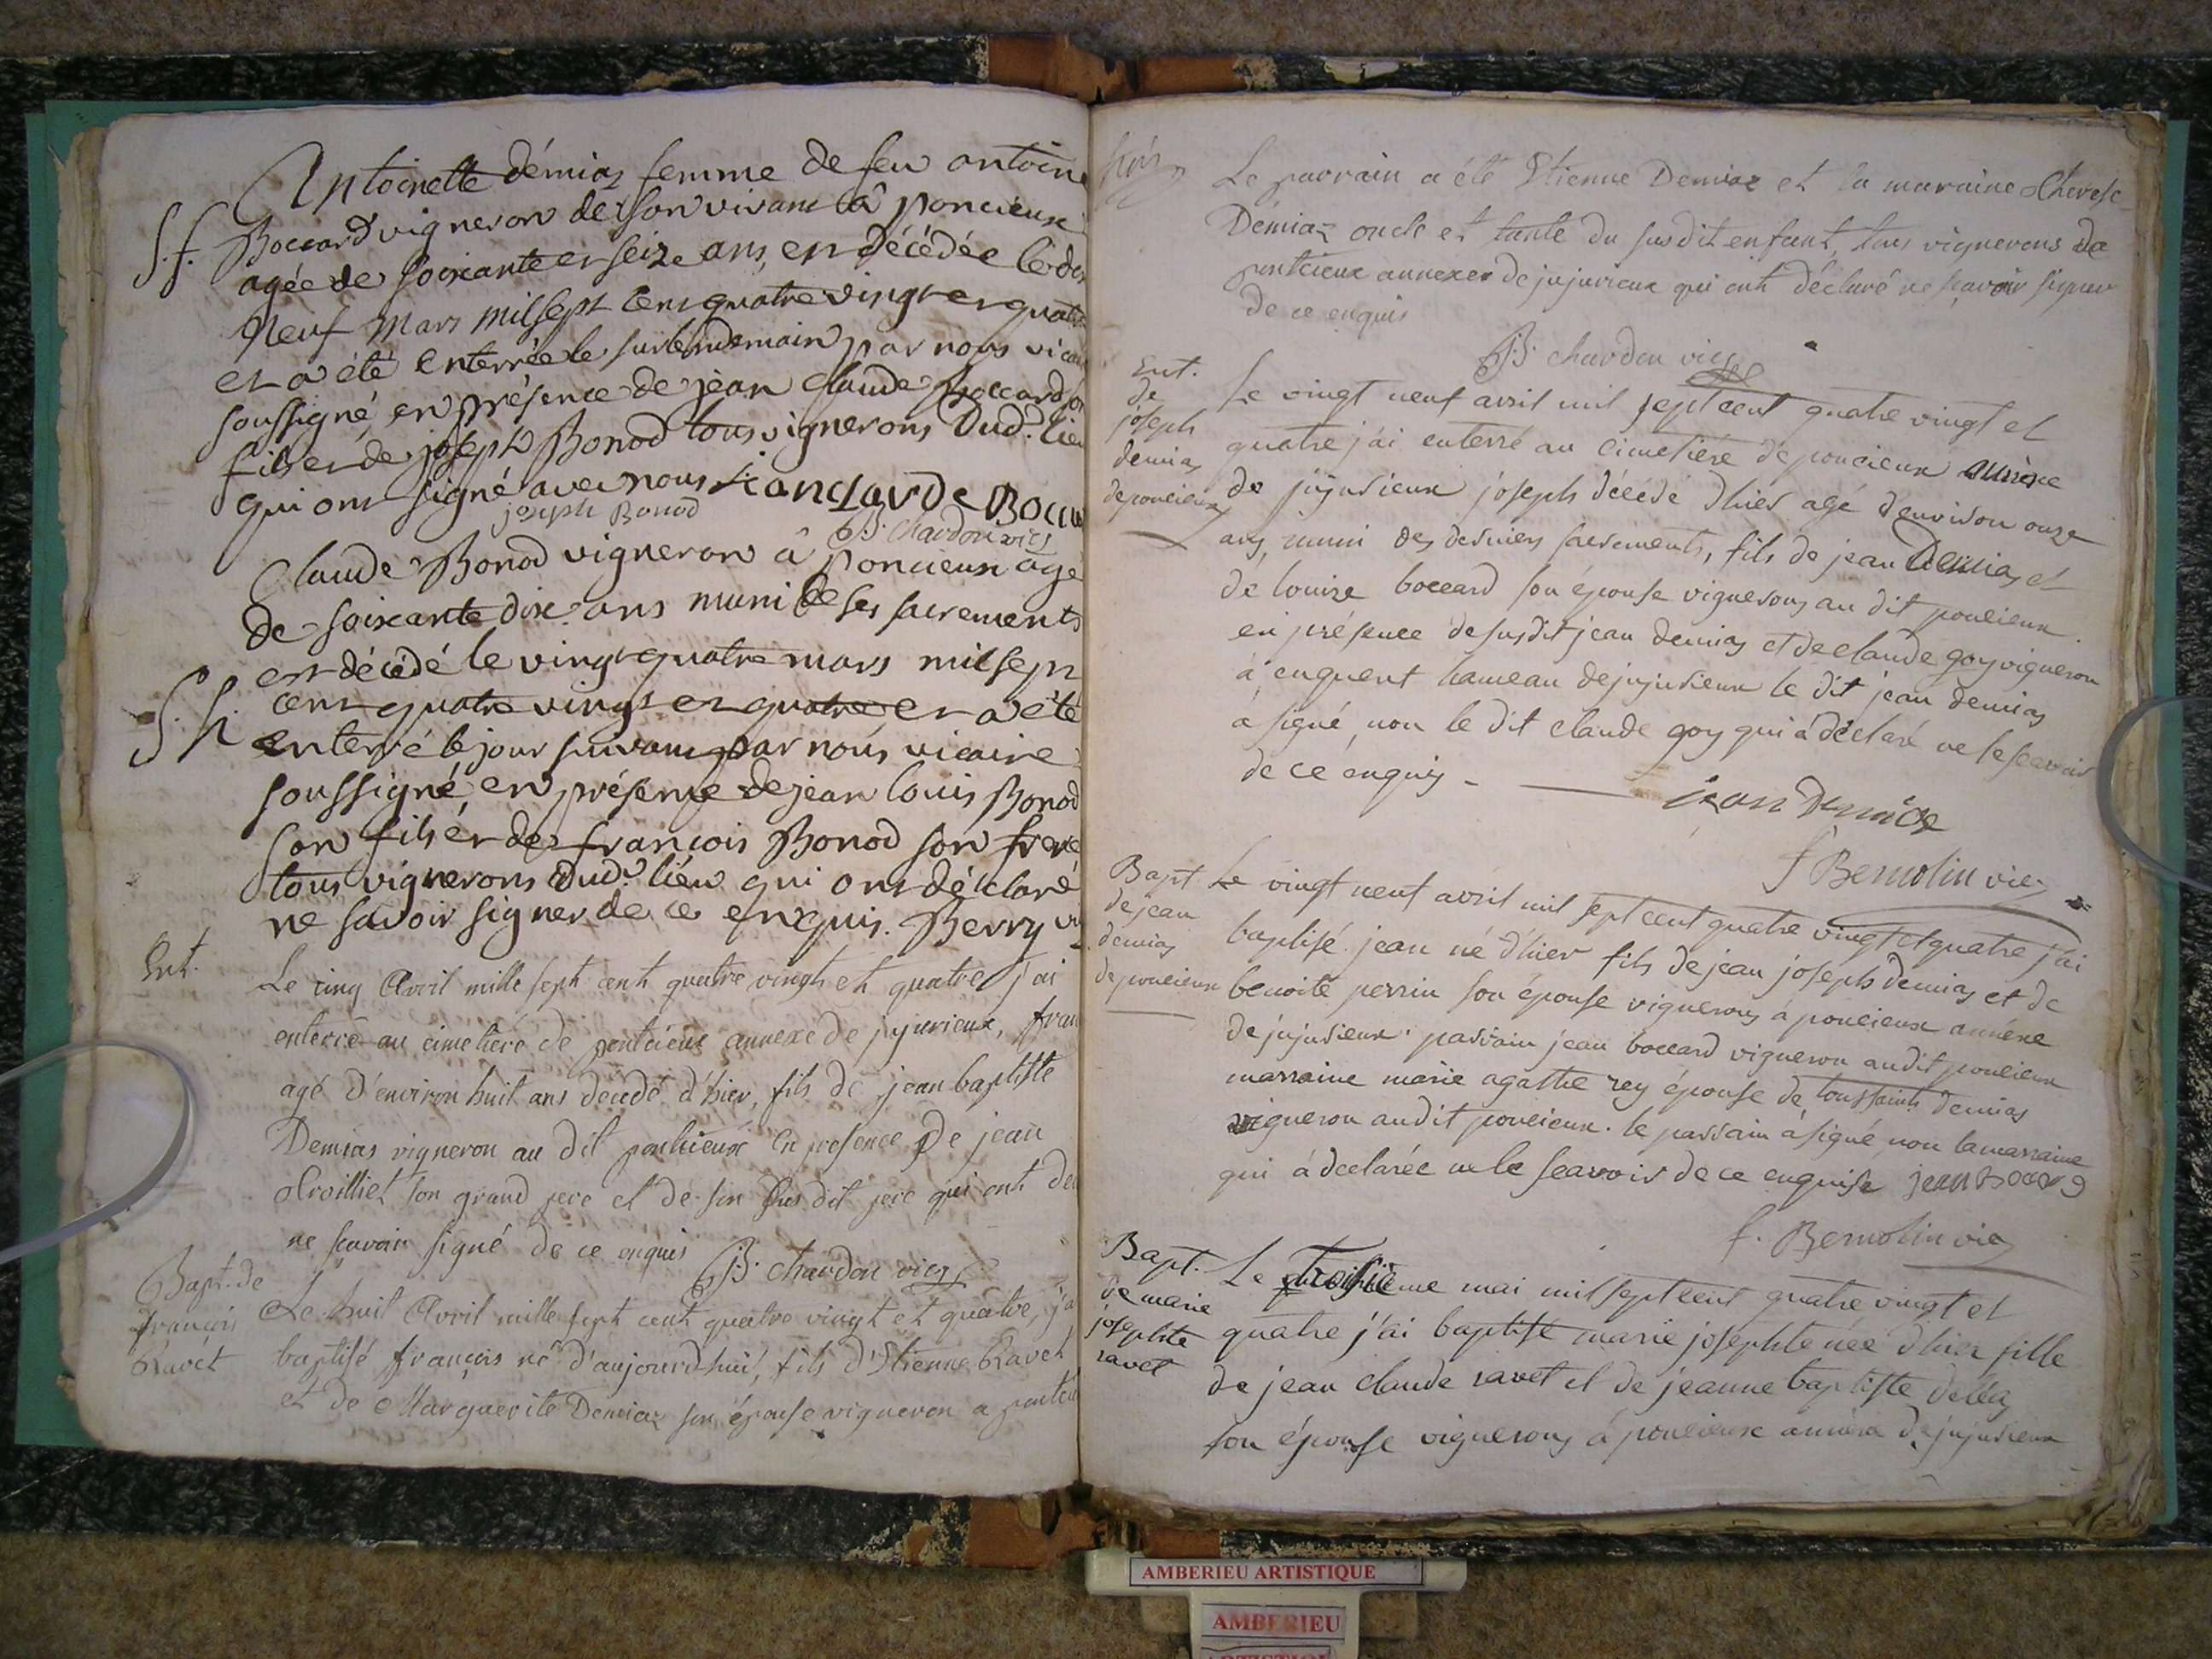 Antoinette démiaz femme de feu antoine
S.f. Boccard vigneron de son vivant â poncieux
agée de soixante et seize ans, est décédée le dix
Neuf mars mil sept cent quatre vingt et quatre
et a été enterrée le surlendemain par nous vicaire
soussigné, en présence de jean Claude Boccard son
fils et de joseph Bonod tous vignerons Dud. lieu
qui ont signé avec nous jean Claude Boccard
joseph Bonod
B. Chardon vic
Claude Bonod vigneron â poncieux agé
de soixante dix ans muni de ses sacrements
est décédé le vingt quatre mars mil sept
S.h. cent quatre vingt et quatre et a été
enterré le jour suivant par nous vicaire
soussigné, en présence de jean louis Bonod
son fils et de françois Bonod son frere
tous vignerons dud. lieu qui ont déclaré
ne savoir signer de ce enquis. Berry vic
Ent.
Le cinq Avril mille sept cent quatre vingts et quatre j'ai
enterré au cimetière de pontcieux annexe de jujurieux, fran
agé d'environ huit ans décédé d'hier, fils de jean baptiste
Demias vigneron au dit pontcieux en presence De jean
son grand pere et de son susdit pere qui ont de
ne sçavoir signé de ce enquis B. chardon vic
Bapt. de
françois
Ravet
Le huit Avril mille sept cent quatre vingt et quatre, j'ai
baptisé françois né d'aujourd'hui, fils d'Etienne Ravet
et de Marguerite Demiaz son épouse vigneron a pontcieux
Le parrain a été Etienne Demiaz et la maraine Therese
Démiaz oncle et tante du susdit enfant, tous vignerons de
pontcieux annexe de jujurieux qui ont déclaré ne sçavoir signer
de ce enquis
B. chardon vic
Ent.
de
joseph
demias
de poncieux
Le vingt neuf avril mil sept cent quatre vingt et
quatre j'ai enterré au cimetière de poncieux annexe
de jujurieux joseph décédé d'hier agé d'environ onze
ans, muni des derniers sacrements, fils de jean Demias et
de louise boccard son épouse vignerons au dit poncieux
en présence de susdit jean demias et de claude goy vigneron
à enquent hameau de jujurieux le dit jean demias
a signé, non le dit claude goy qui a déclaré ne le scavoir
de ce enquis
jean Demiaz
f Bernolin vic
Bapt
de jean
demias
de poncieux
Le vingt neuf avril mil sept cent quatre vingt et quatre j'ai
baptisé jean né d'hier fils de jean joseph demias et de
benoite perrin son épouse vignerons à poncieux annexe
de jujurieux. parrain jean boccard vigneron au dit poncieux
marraine marie agathe rey épouse de toussaint demias
vigneron au dit poncieux. le parrain a signé, non la marraine
qui à declarée ne le scavoir de ce enquise jean Boccard
f. Bernolin vic
Bapt.
de marie
josephte
ravet
Le troisième mai mil sept cent quatre vingt et
quatre j'ai baptisé marie josephte née d'hier fille
de jean claude ravet et de jeanne baptiste
son épouse vignerons à poncieux annéxe de jujurieux
AMBERIEU ARTISTIQUE
AMBERIEU
ARTISTIQUE